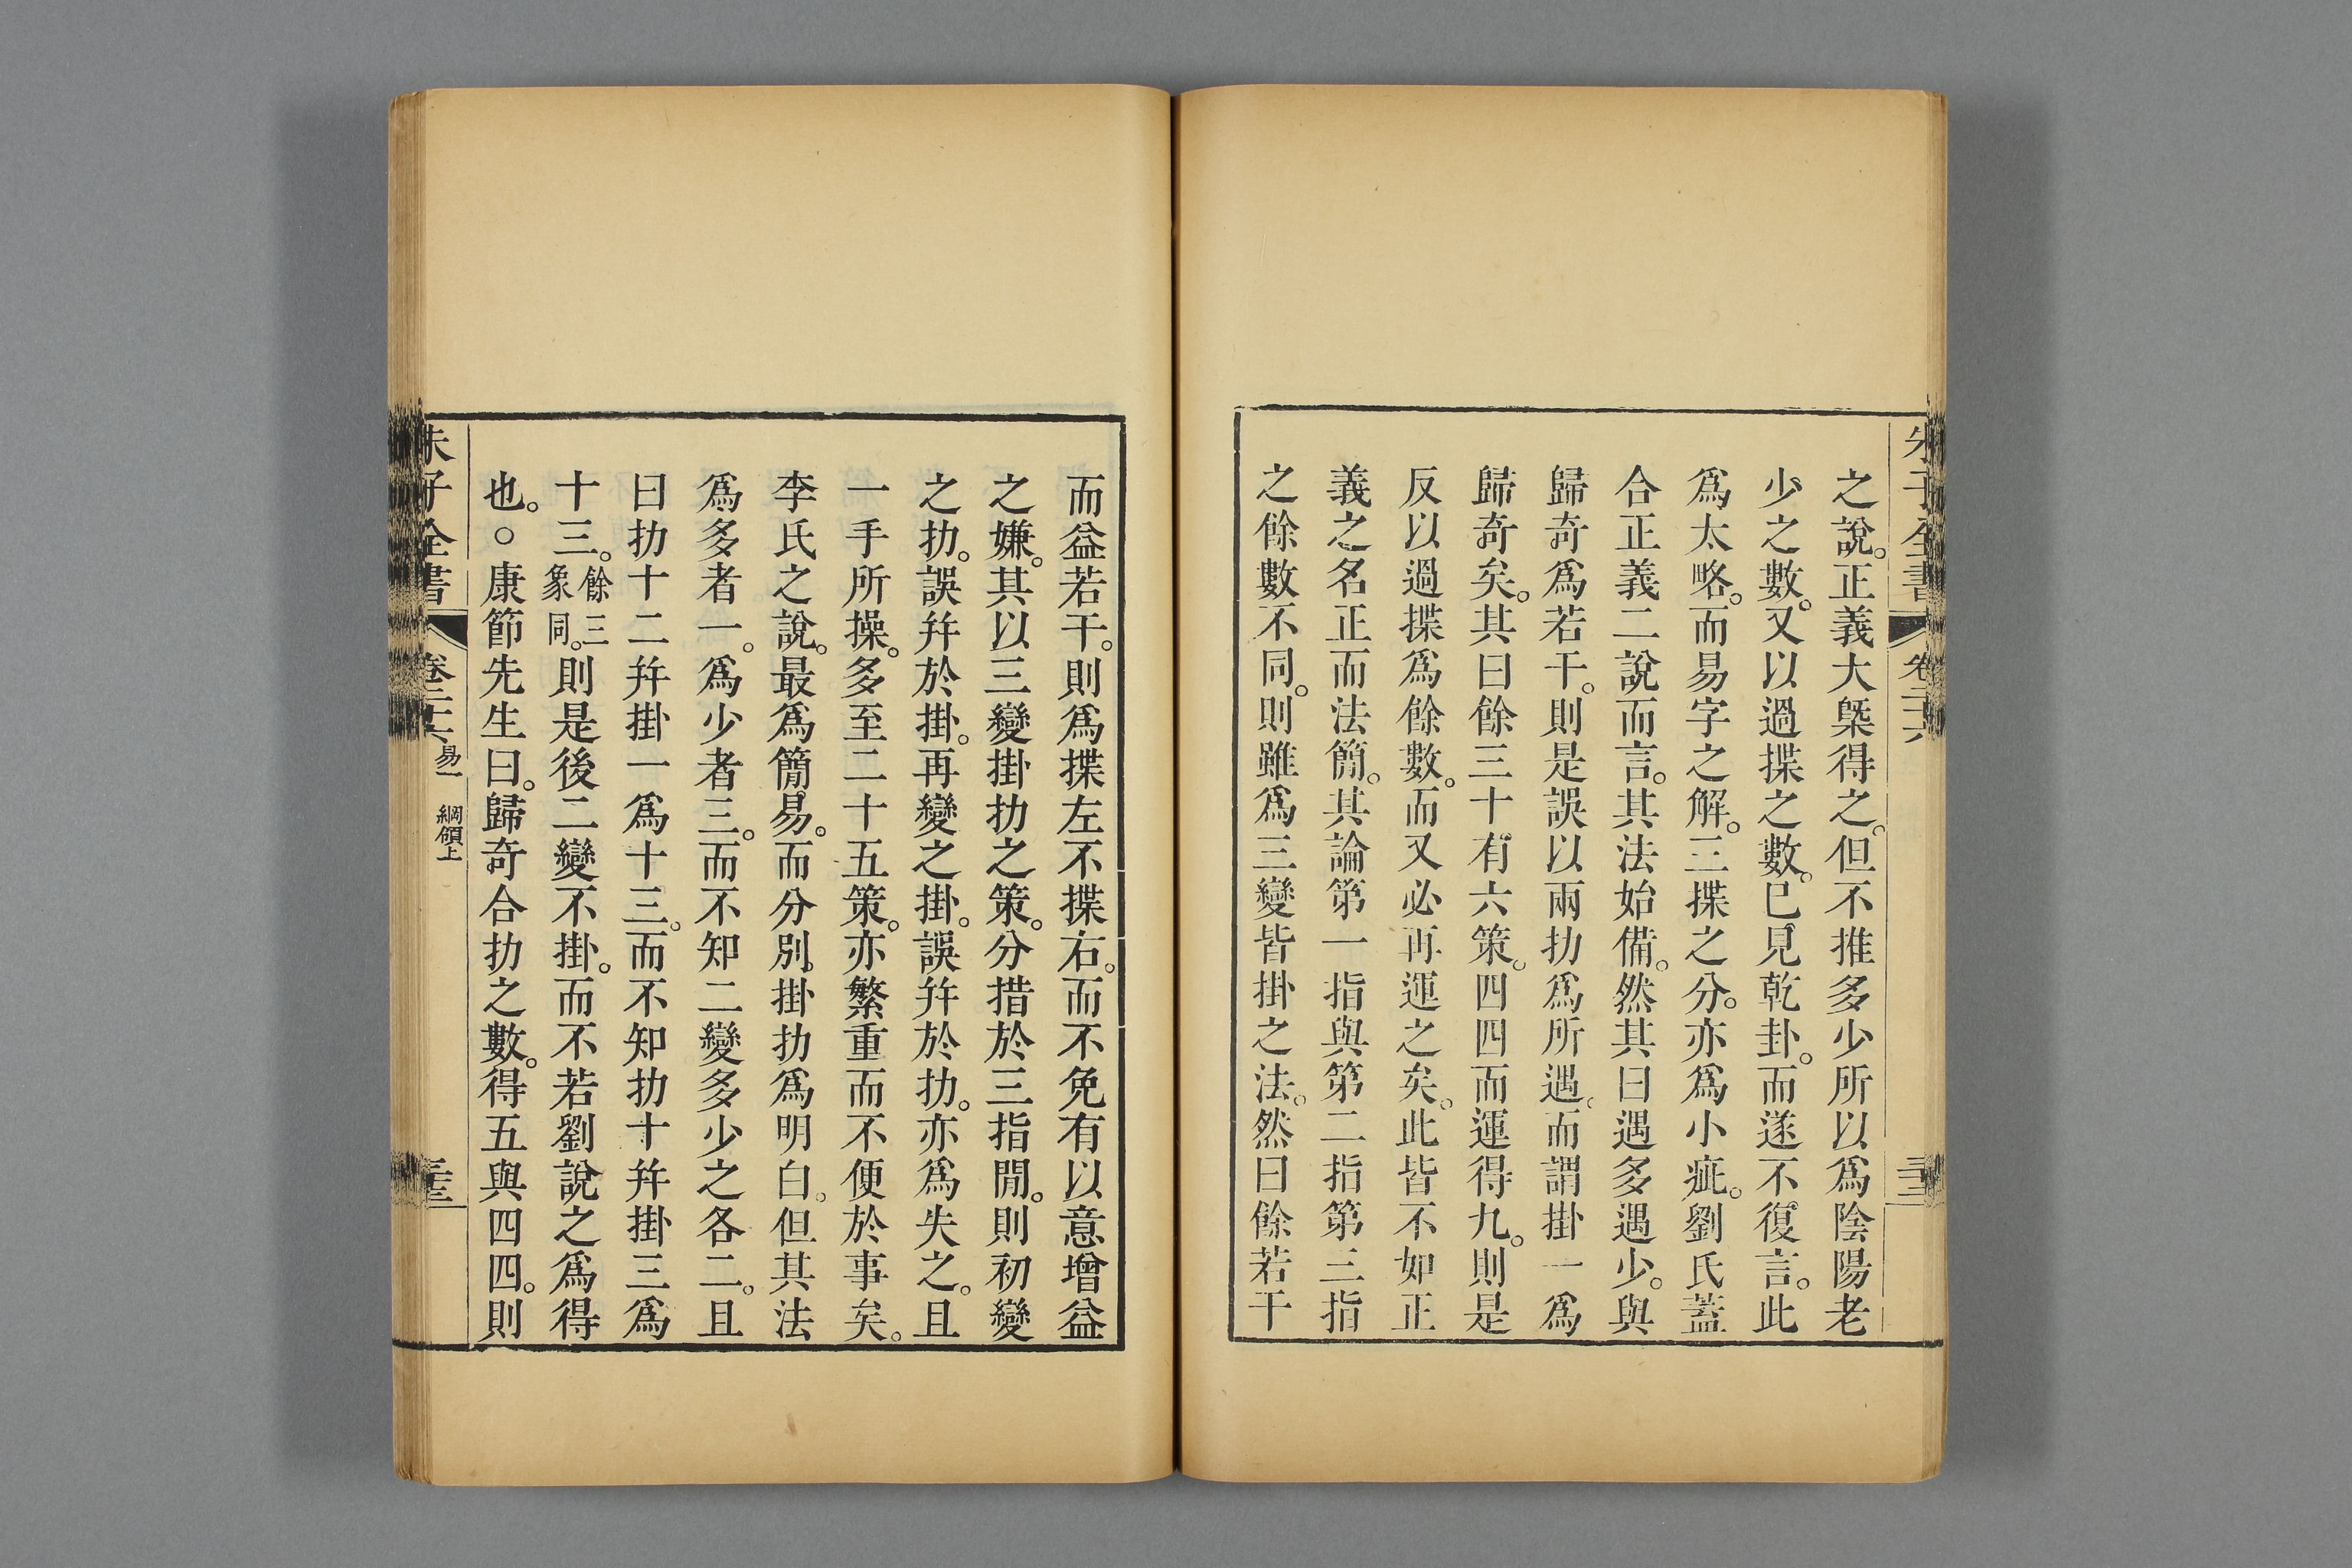 朱子全書 卷二十六
之說。正義大槩得之。但不推多少所以爲陰陽老
少之數。又以過揲之數。已見乾卦。而遂不復言。此
爲太略。而易字之解。三揲之分。亦爲小疵。劉氏蓋
合正義二說而言。其法始備。然其曰遇多遇少。與
歸奇爲若干。則是誤以兩扐爲所遇。而謂掛一爲
歸奇矣。其曰餘三十有六策。四四而運得九。則是
反以過揲爲餘數。而又必再運之矣。此皆不如正
義之名正而法簡。其論第一指與第二指第三指
之餘數不同。則雖爲三變皆掛之法。然曰餘若干
而益若干。則爲揲左不揲右。而不免有以意增益
之嫌。其以三變掛扐之策。分措於三指閒。則初變
之扐。誤幷於掛。再變之掛。誤幷於扐。亦爲失之。且
一手所操。多至二十五策。亦繁重而不便於事矣。
李氏之說。最爲簡易。而分別掛扐爲明白。但其法
爲多者一。爲少者三。而不知二變多少之各二。且
曰扐十二幷掛一爲十三。而不知扐十幷掛三爲
十三。餘三象同。則是後二變不掛。而不若劉說之爲得
也。○康節先生曰。歸奇合扐之數。得五與四四。則
朱子全書 卷二十六 易一 綱領上